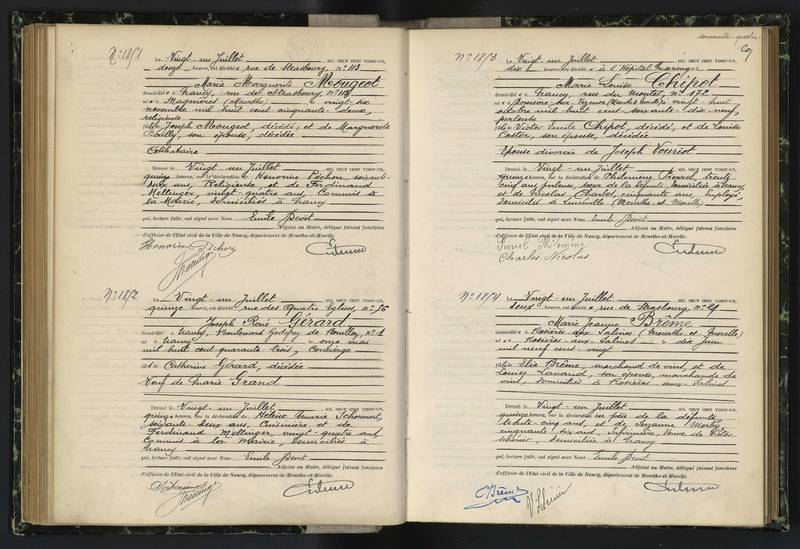 N° 1851
Le Vingt-un Juillet MIL NEUF CENT VINGT-UN,
douze heures, est décédée rue de Strasbourg, n° 113
Marie Marguerite Mougeot
domiciliée à Nancy, rue de Strasbourg, n° 113
née à Magnières (Meurthe) le vingt six
novembre mil huit cent cinquante-deux,
religieuse
fille de Joseph Mougeot, décédé, et de Marguerite
son épouse, décédée
Célibataire
Dressé le Vingt-un Juillet MIL NEUF CENT VINGT-UN,
quinze heures, sur la déclaration de Honorine Péchon, soixante
deux ans, Religieuse, et de Ferdinand
Mellenger, vingt-quatre ans, Commis à
la Mairie, domiciliés à Nancy
qui, lecture faite, ont signé avec Nous Emile Bevit
Adjoint au Maire, délégué faisant fonctions
d'officier de l'État civil de la Ville de Nancy, département de Meurthe-et-Moselle.
N° 1852
Le Vingt-un Juillet MIL NEUF CENT VINGT-UN,
quinze heures, est décédé rue des Quatre Eglises, n° 56
Joseph René Gérard
domicilié à Nancy, Boulevard Godefroy de Bouillon, n° 1
né à Nancy le onze mai
mil huit cent quarante-trois, Concierge
fils de Catherine Gérard, décédée
Veuf de Marie Grand
Dressé le Vingt-un Juillet MIL NEUF CENT VINGT-UN,
quinze heures, sur la déclaration de Hélène Marie
soixante-deux ans, Cuisinière, et de
Ferdinand Mellenger, vingt-quatre ans,
Commis à la Mairie, domiciliés à
Nancy
qui, lecture faite, ont signé avec Nous Emile Bevit
Adjoint au Maire, délégué faisant fonctions
d'officier de l'État civil de la Ville de Nancy, département de Meurthe-et-Moselle.
soixante-quatre
N° 1853
Le Vingt-un Juillet MIL NEUF CENT VINGT-UN,
dix heures, est décédée à l'Hôpital Maringer
Marie Louise Chipot
domiciliée à Nancy, rue du Montet, n° 172
née à (Meurthe & Moselle) vingt huit
octobre mil huit cent soixante-dix-neuf,
perleuse
fille de Victor Emile Chipot, décédé, et de Louise
son épouse, décédée
Epouse divorcée de Joseph Vouriot
Dressé le Vingt-un Juillet MIL NEUF CENT VINGT-UN,
quinze heures, sur la déclaration de Philomène Pierrel, trente
cinq ans, perleuse, soeur de la défunte domiciliée à Nancy,
et de Nicolas Charles, cinquante ans, Employé,
domicilié à Lunéville (Meurthe et Moselle)
qui, lecture faite, ont signé avec Nous Emile Bevit
Adjoint au Maire, délégué faisant fonctions
d'officier de l'État civil de la Ville de Nancy, département de Meurthe-et-Moselle.
Charles Nicolas
N° 1854
Le Vingt-un Juillet MIL NEUF CENT VINGT-UN,
deux heures, est décédée rue de Strasbourg, n° 69
Marie Jeanne Brême
domiciliée à Rosières-aux-Salines (Meurthe et Moselle)
née à Rosières-aux-Salines le dix Juin
mil neuf cent vingt
fille de Elie Brême, marchand de vins, et de
Louise son épouse, marchande de
vins, domiciliés à Rosières-aux-Salines
Dressé le Vingt-un Juillet MIL NEUF CENT VINGT-UN,
quinze heures, sur la déclaration du père de la défunte,
trente cinq ans, et de Suzanne
cinquante six ans, Infirmière, veuve de Victor
domiciliée à Nancy
qui, lecture faite, ont signé avec Nous Emile Bevit
Adjoint au Maire, délégué faisant fonctions
d'officier de l'État civil de la Ville de Nancy, département de Meurthe-et-Moselle.
Brême